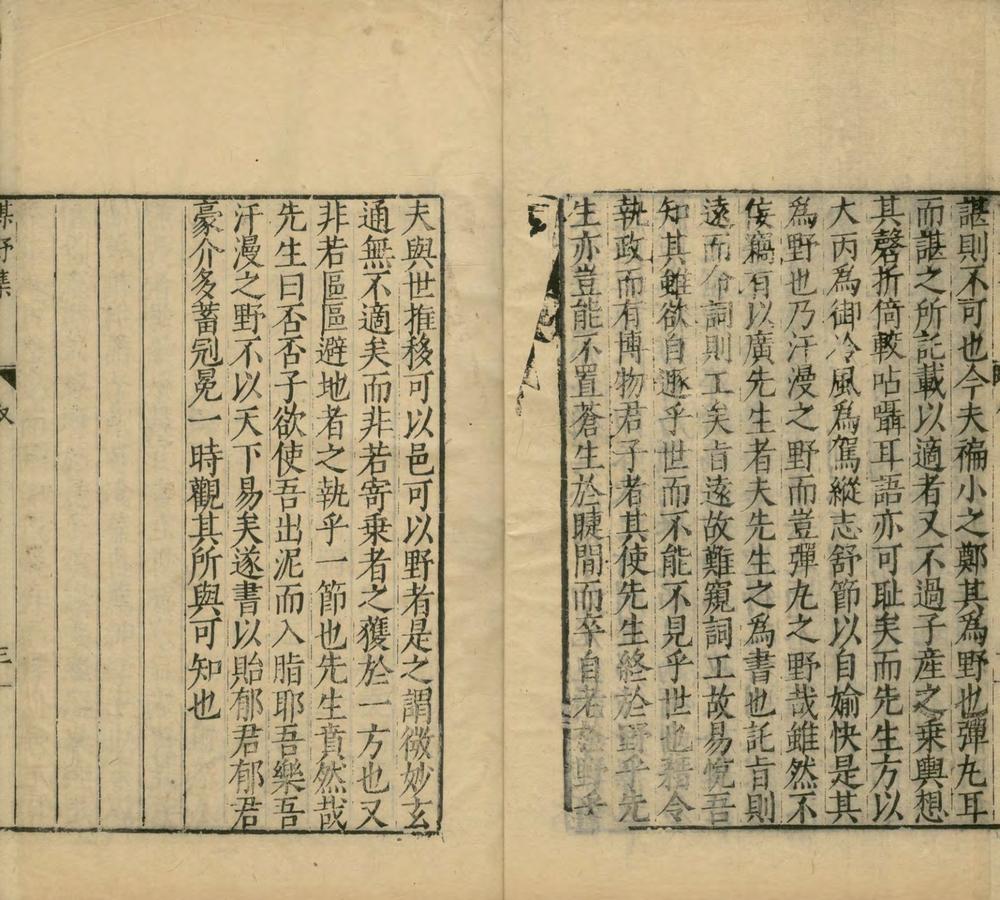 諶則不可也今夫褊小之鄭其為野也彈丸耳
而諶之所託載以適者又不過子產之乗輿想
其磬折倚較呫囁耳語亦可耻矣而先生方以
大丙為御冷風為駕縱志舒節以自媮快是其
為野也乃汗漫之野而豈彈丸之野哉雖然不
佞竊有以廣先生者夫先生之為書也託㫖則
遠而命詞則工矣㫖遠故難窺詞工故易悅吾
知其雖欲自遯乎世而不能不見乎世也藉令
執政而有博物君子者其使先生終於野乎先
生亦豈能不置蒼生於睫間而卒自老於野乎
夫與世推移可以邑可以野者是之謂微妙玄
通無不適矣而非若寄乗者之獲於一方也又
非若區區避地者之執乎一節也先生賁然哉
先生曰否否子欲使吾出泥而入脂耶吾樂吾
汗漫之野不以天下易矣遂書以貽郁君郁君
豪介多蓄冠冕一時觀其所與可知也
謀野集
三